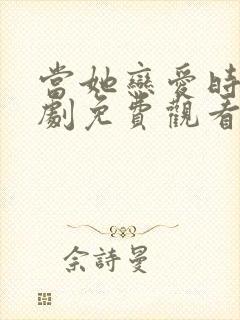 當她戀愛時
劇免費觀看
佘詩曼